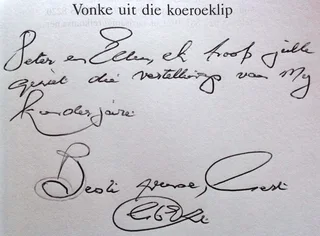 Vonke uit die koeroeklip
Peter en Ellen, ek hoop julle
geniet die vertellings van my
kinderjare
Beste